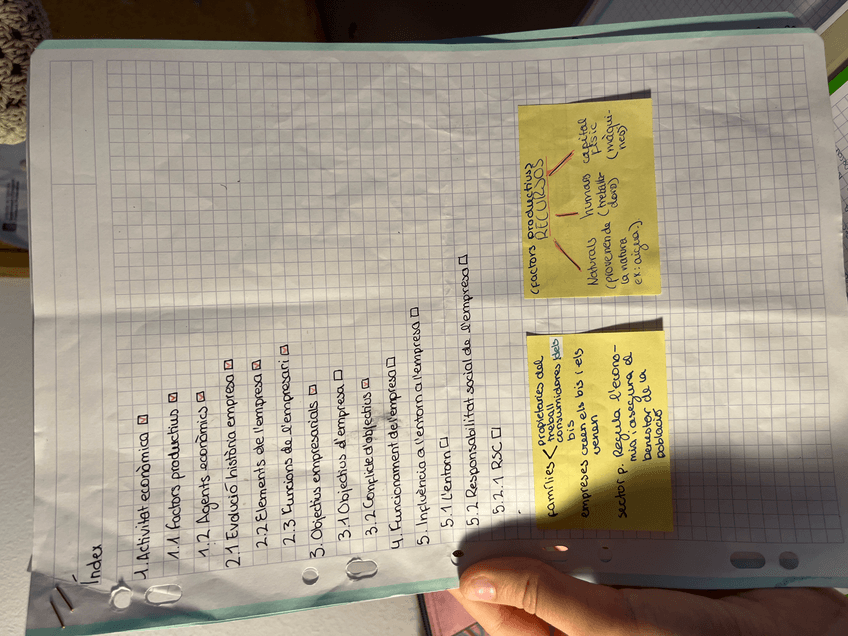 Índex
1. Activitat econòmica ☑
1.1 Factors productius ☑
1.2 Agents econòmics ☑
2.1 Evolució història empresa ☑
2.2 Elements de l'empresa ☑
2.3 Funcions de l'empresari ☑
3. Objectius empresarials ☑
3.1 Objectius d'empresa ☐
3.2 Conflicte d'objectius ☑
4. Funcionament de l'empresa ☐
5. Influència a l'entorn a l'empresa ☐
5.1 L'entorn ☐
5.2 Responsabilitat social de l'empresa ☐
5.2.1 RSC ☐
famílies < propietaries del
treball
consumidores dels
bis
empreses creen els bis i els
venen
sector p. Regula l'econo-
mia i assegura el
benestar de la
població
(Factors productius)
RECURSOS
Naturals
(provenen de
la natura
ex: aigua.)
humans
(treballa-
dors)
capital
físic
(màqui-
nes)